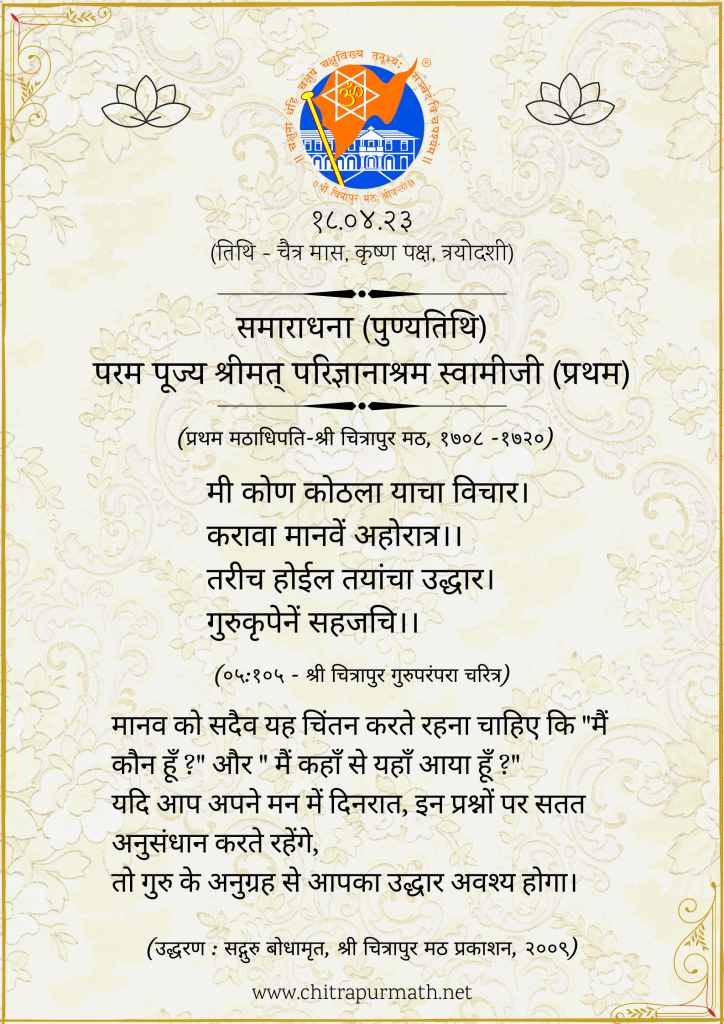 ॥ चक्षुर्नो धेहि चक्षुषे चक्षुर्विख्यै तनूभ्यः सञ्चेदं वि च पश्येम ॥
®
॥श्री चित्रापुर मठः श्रीवल्ली॥
१८.०४.२३
(तिथि - चैत्र मास, कृष्ण पक्ष, त्रयोदशी)
समाराधना (पुण्यतिथि)
परम पूज्य श्रीमत् परिज्ञानाश्रम स्वामीजी (प्रथम)
(प्रथम मठाधिपति-श्री चित्रापुर मठ, १७०८ -१७२०)
मी कोण कोठला याचा विचार।
करावा मानवें अहोरात्र।।
तरीच होईल तयांचा उद्धार।
गुरुकृपेनें सहजचि।।
(०५:१०५ - श्री चित्रापुर गुरुपरंपरा चरित्र)
मानव को सदैव यह चिंतन करते रहना चाहिए कि "मैं
कौन हूँ ?" और " मैं कहाँ से यहाँ आया हूँ ?"
यदि आप अपने मन में दिनरात, इन प्रश्नों पर सतत
अनुसंधान करते रहेंगे,
तो गुरु के अनुग्रह से आपका उद्धार अवश्य होगा।
(उद्धरण : सद्गुरु बोधामृत, श्री चित्रापुर मठ प्रकाशन, २००९)
www.chitrapurmath.net